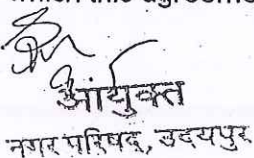 आयुक्त
नगर परिषद्, उदयपुर